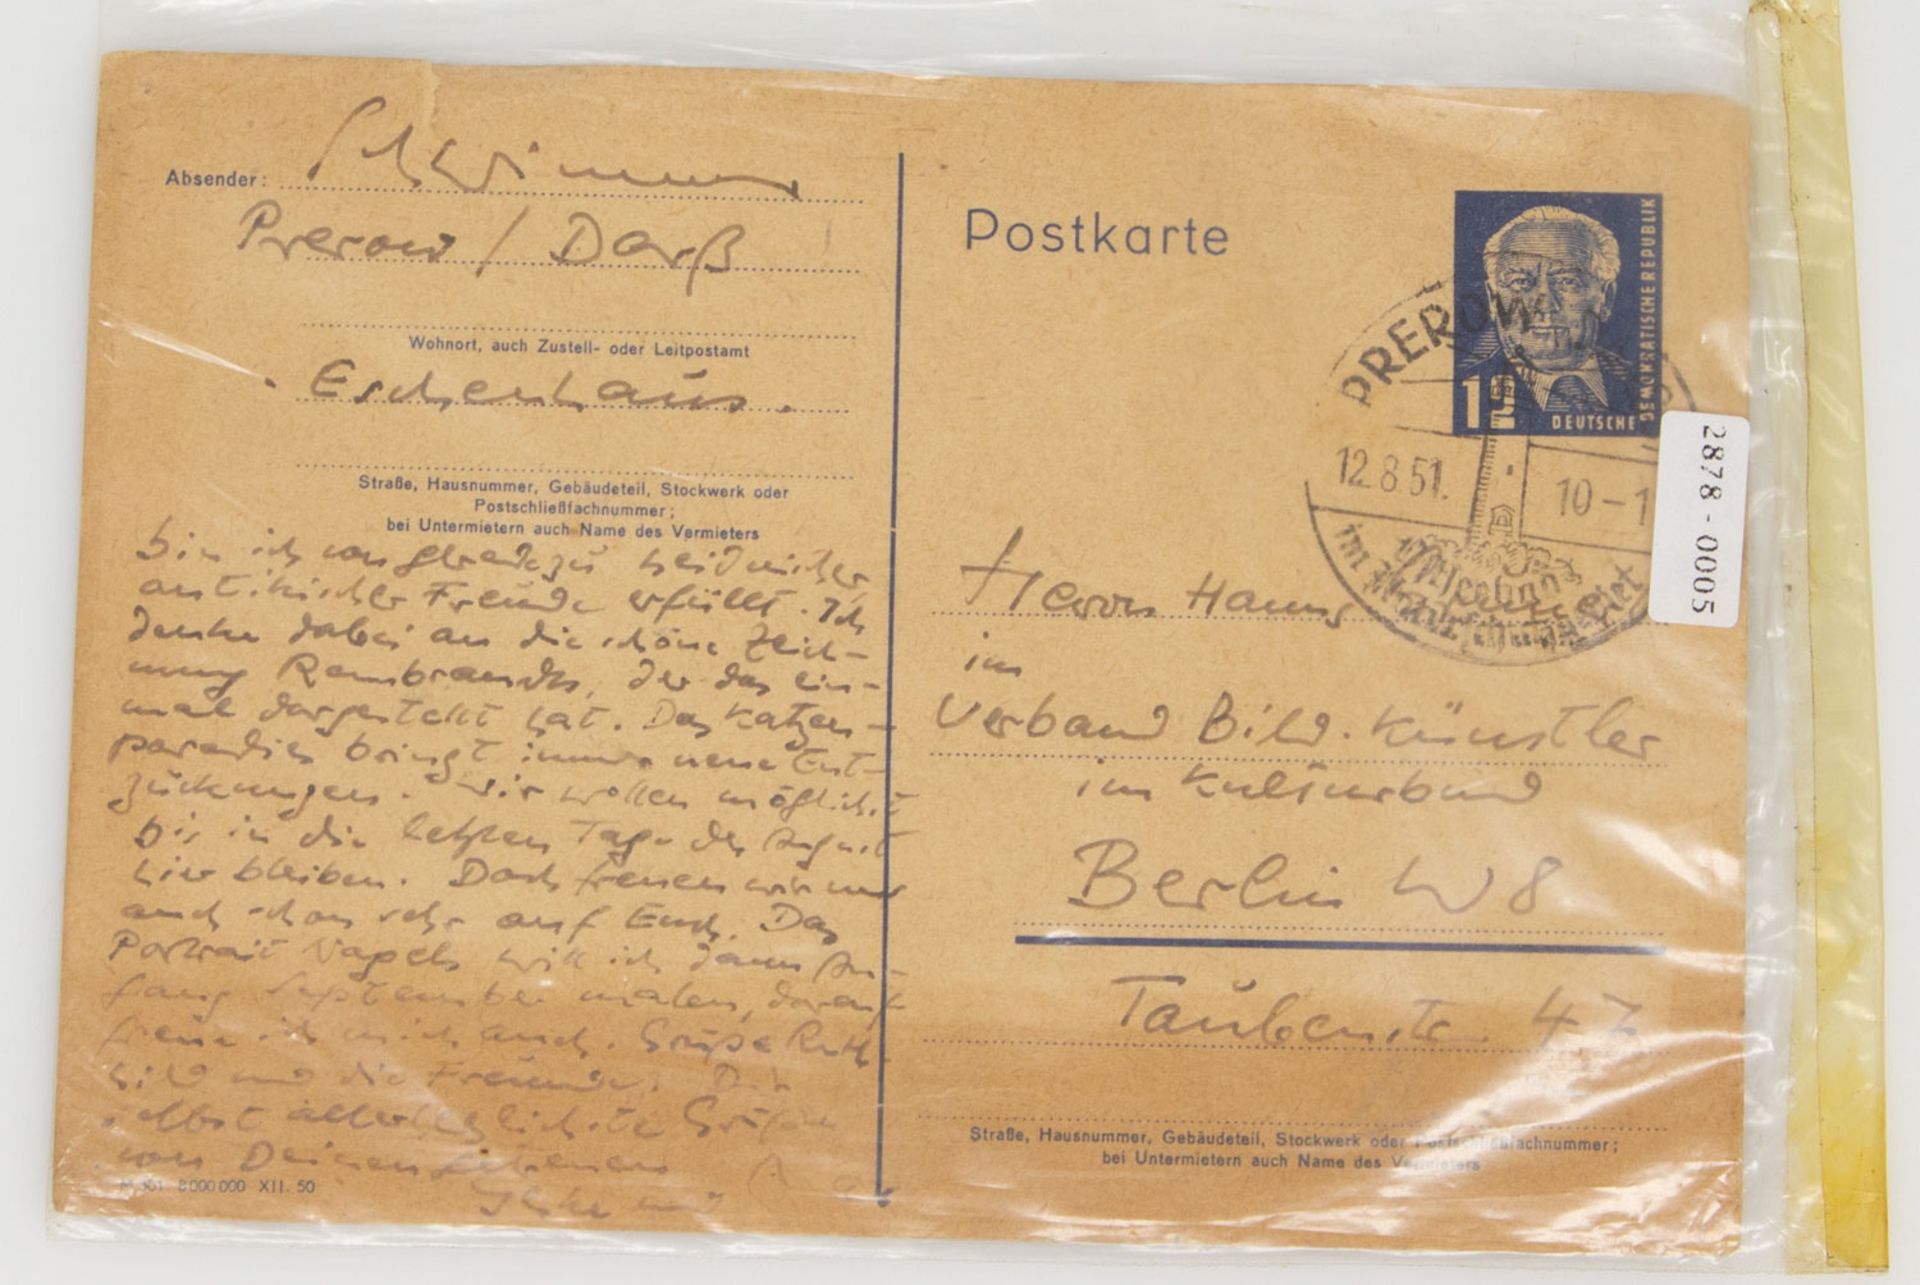 Absender: Schwimmer
Prerow / Darß
Wohnort, auch Zustell- oder Leitpostamt
Eschenhaus.
Straße, Hausnummer, Gebäudeteil, Stockwerk oder
Postschließfachnummer;
bei Untermietern auch Name des Vermieters
bin ich von geradezu heidnischer
antikischer Freude erfüllt. Ich
denke dabei an die schöne Zeich-
nung Rembrandts, der das ein-
mal dargestellt hat. Das Katzen-
paradies bringt immer neue Ent-
zückungen. Wir wollen möglichst
bis in die letzten Tage des August
hier bleiben. Doch freuen wir uns
auch schon sehr auf Euch. Das
Portrait Nagels will ich dann An-
fang September malen, darauf
freue ich mich auch. Grüße Ruth-
hild und die Freunde. Dir
selbst allerherzlichste Grüße
von Deinen
M 301 8000000 XII. 50
Postkarte
12
DEUTSCHE
DEMOKRATISCHE REPUBLIK
PREROW
12.8.51.
10-1
2878-0005
Herrn Hanns
im
Verband Bild. Künstler
im Kulturbund
Berlin W 8
Taubenstr. 47
Straße, Hausnummer, Gebäudeteil, Stockwerk oder Postschließfachnummer;
bei Untermietern auch Name des Vermieters